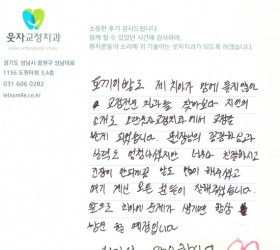 웃자교정치과
smile orthodontic clinic
경기도 성남시 중원구 성남대로
1156 도원타워 3,4층
031 606 0282
letssmile.co.kr
소중한 후기 감사드립니다.
함께 할 수 있었던 시간에 감사하며,
환자분들의 소리에 귀 기울이는 웃자교정치과가 되도록 하겠습니다.
토끼이빨로 제 치아가 맘에 들지 않아
교정전문 치과를 찾아보다 지인의
소개로 웃자교정치과에서 교정을
받게 되었습니다. 원장님의
실력도 너무나 친절하고
많이 해주셨고
여기 계신 모든 분들이 친절했습니다.
앞으로 치아에 문제가 생기면 항상
방문 할 예정입니다.